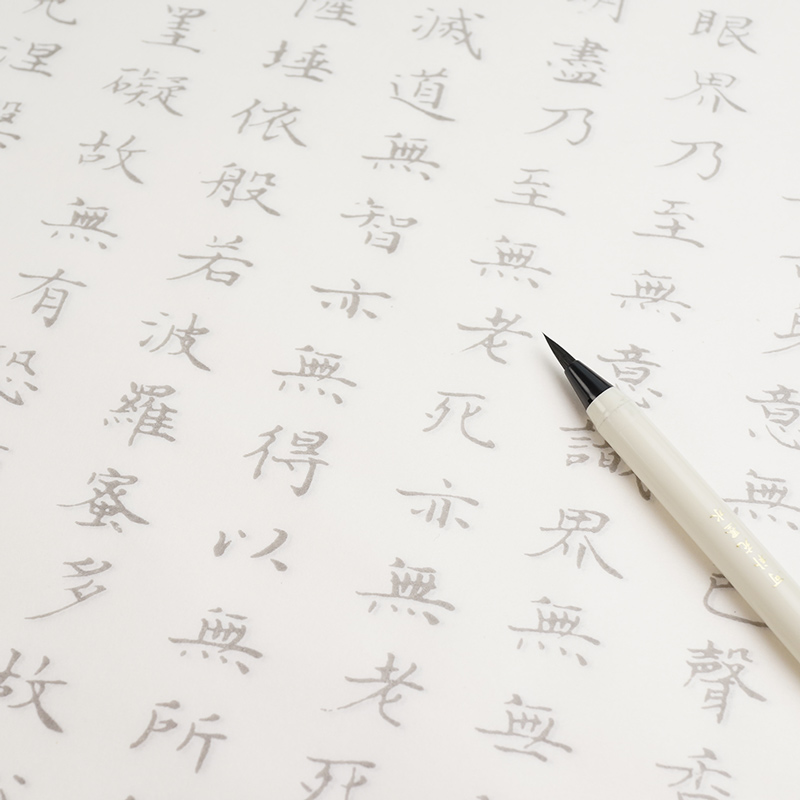 身意無色聲香
眼界乃至無意識界無無
明盡乃至無老死亦無老死
滅道無智亦無得以無所
薩埵依般若波羅蜜多故
罣礙故無有恐
竟涅槃